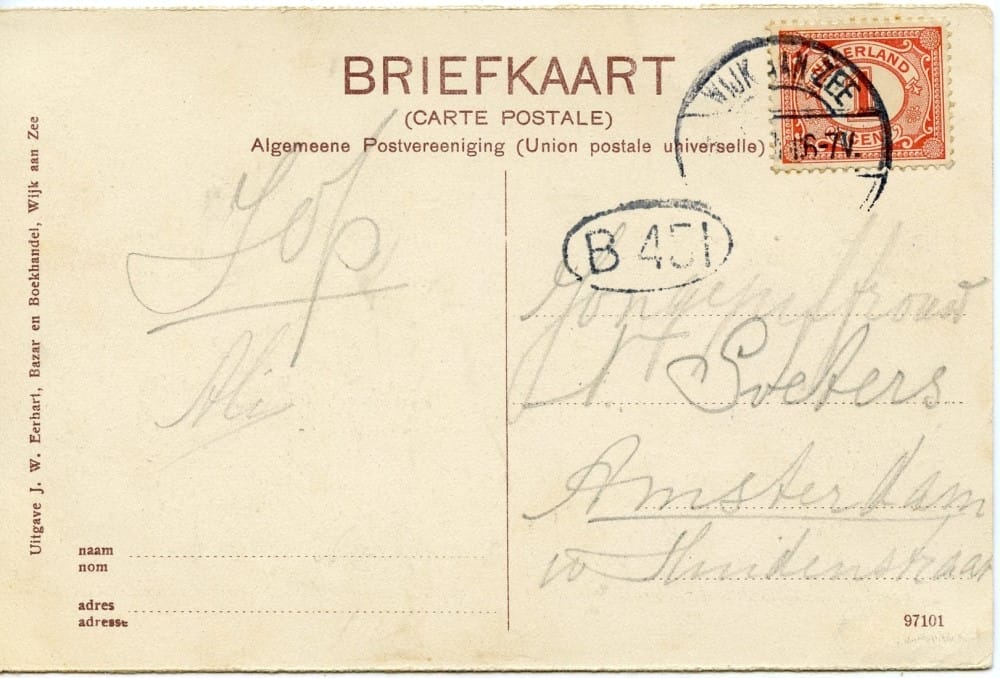 BRIEFKAART
(CARTE POSTALE)
Algemeene Postvereeniging (Union postale universelle)
WIJK AAN ZEE
6-7N.
NEDERLAND
1
CENT
B 451
Jongejuffrouw
Soeters
Amsterdam
Huidenstraat
Ali
naam
nom
adres
adresse
97101
Uitgave J. W. Eerhart, Bazar en Boekhandel, Wijk aan Zee